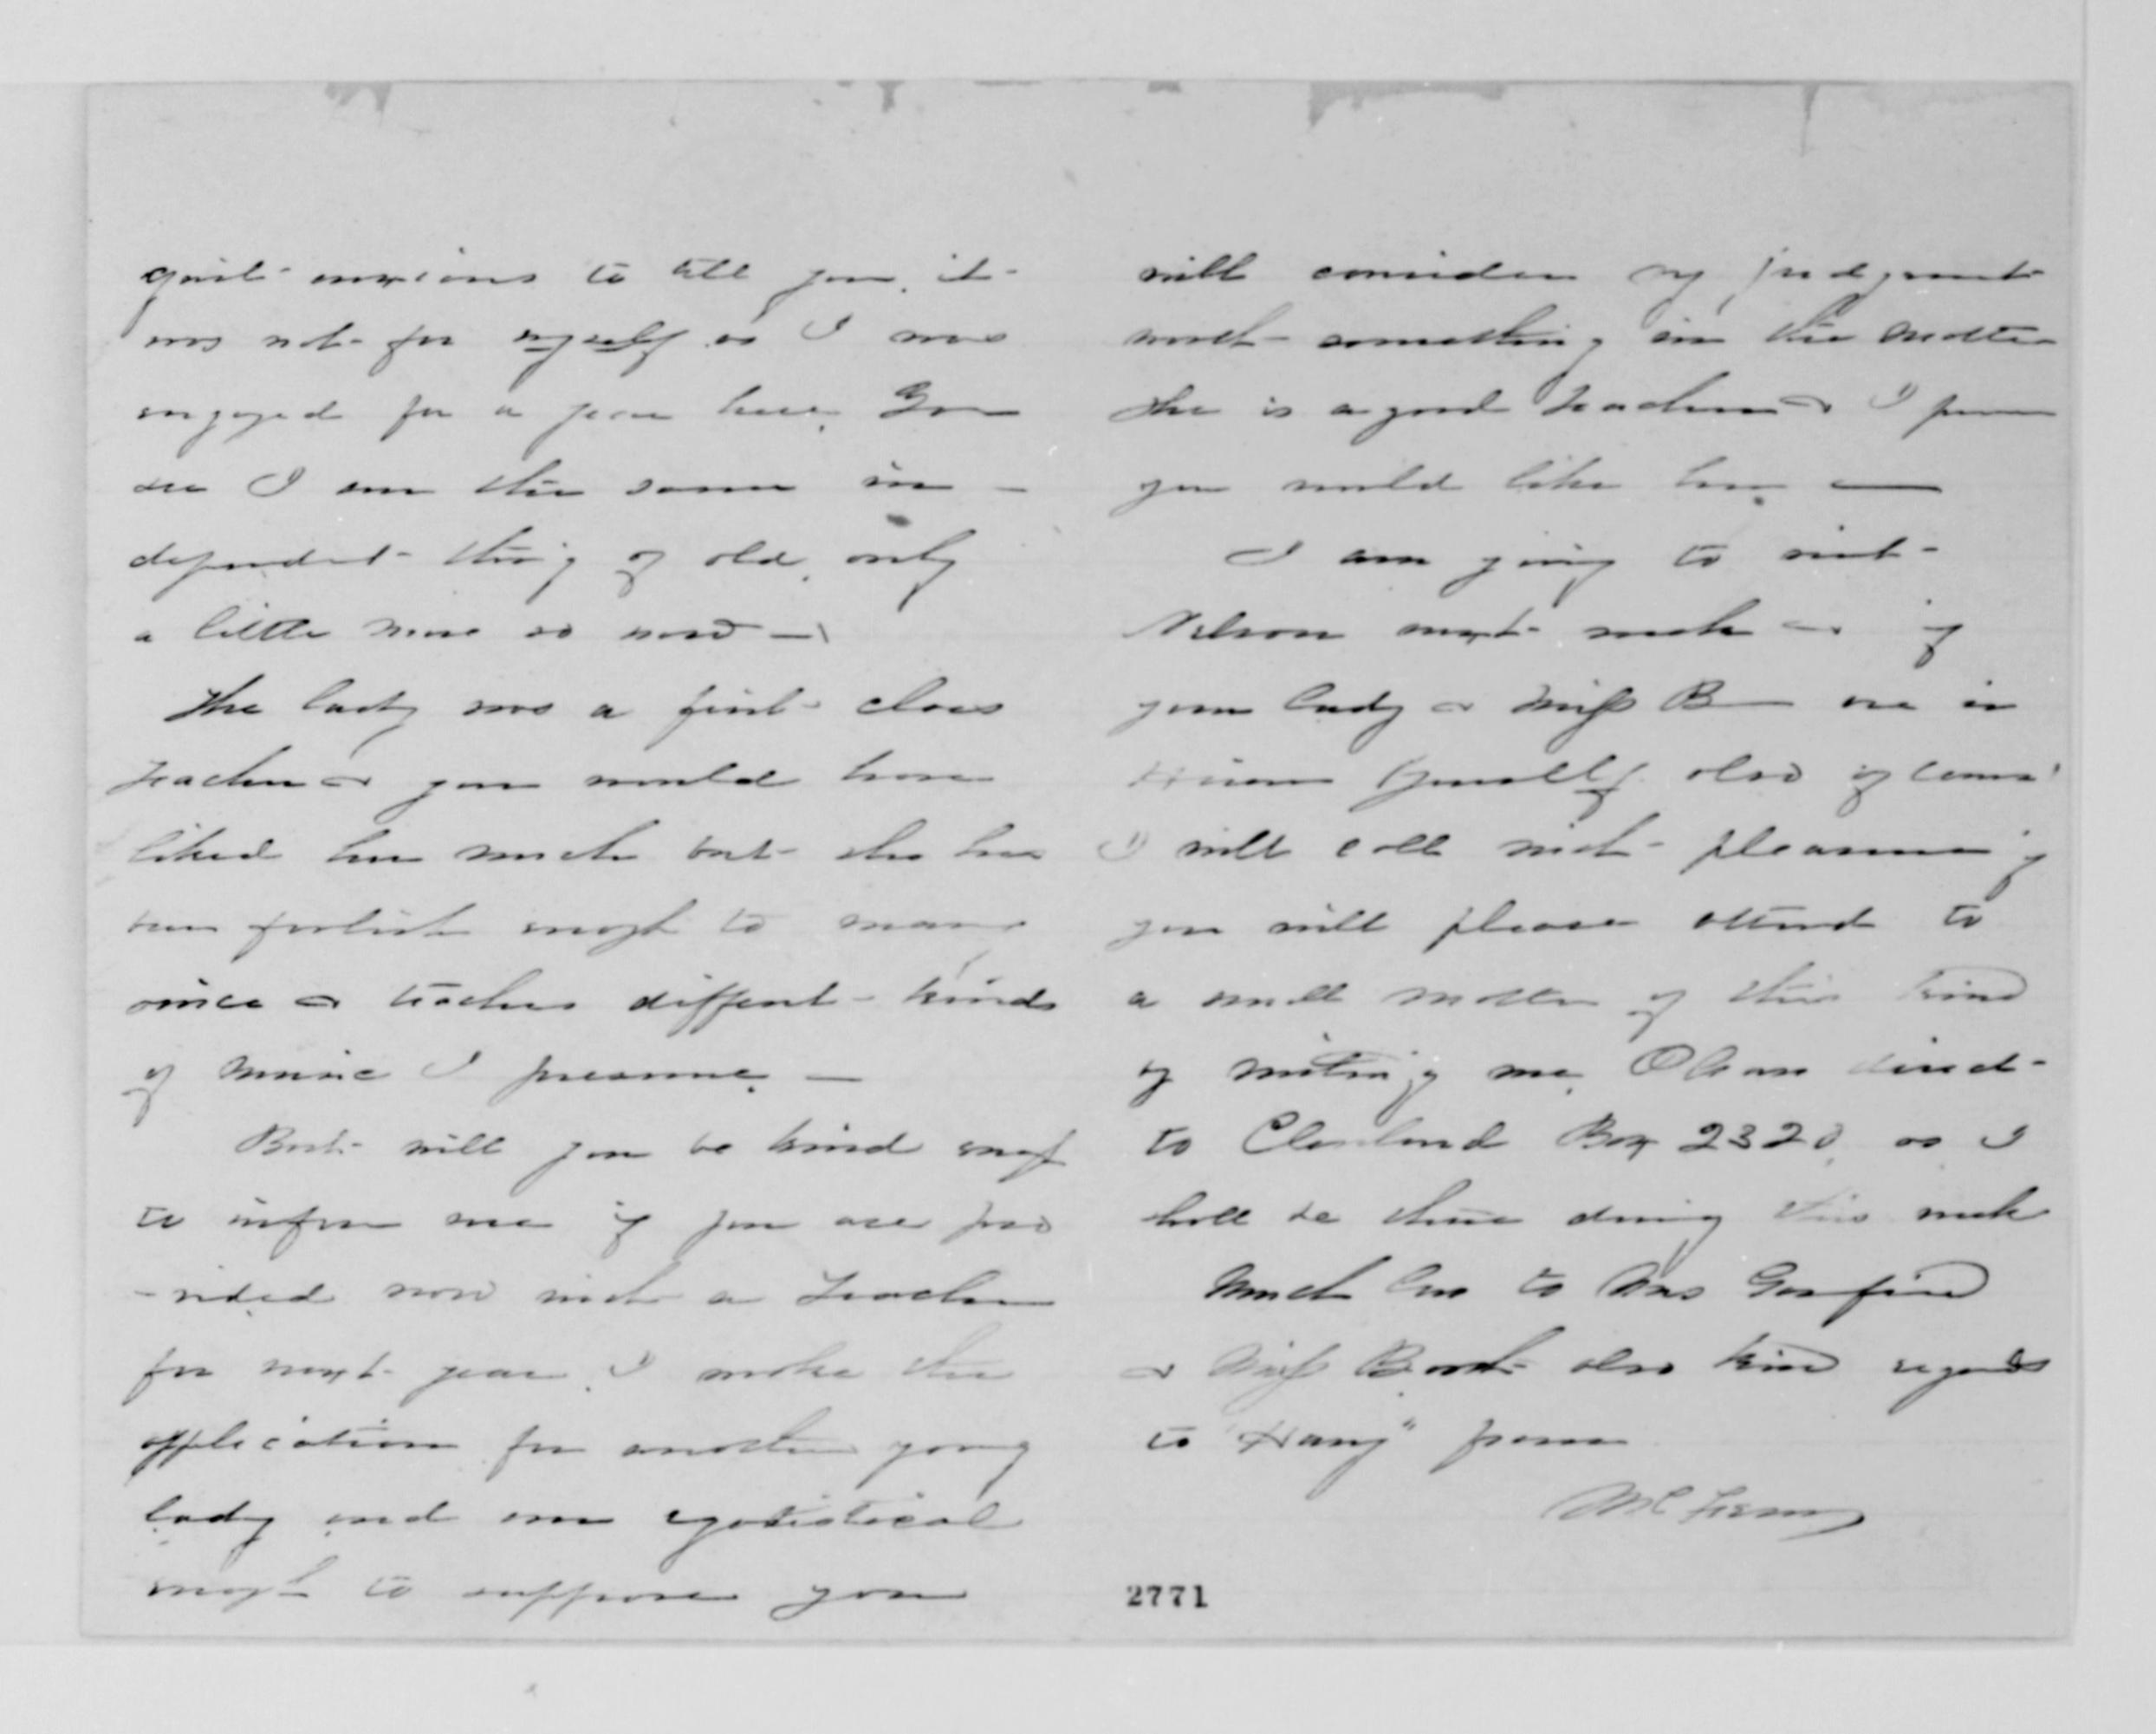 quite anxious to tell you, it
was not for myself as I was
engaged for a year here. You
see I am the same in-
dependent thing of old, only
a little more so now—
The lady was a first class
Teacher & you would have
liked her much but she has
been foolish enough to marry
since & teaches different kinds
of music I presume.—
But will you be kind enough
to inform me if you are pro
-vided now with a Teacher
for next year. I make the
application for another young
lady and am egotistical
enough to suppose you
will consider my judgment
worth something in the matter
She is a good Teacher & I
you would like her—
I am going to visit
Nelson next week & if
your lady & Miss B— are in
Hiram (yourself also of course)
I will call with pleasure if
you will please attend to
a small matter of this kind
of writing me. Please direct
to Cleveland Box 2320, as I
shall be there during this week
Much love to Mrs Garfield
& Miss Booth also kind regards
to "Harry" from
2771